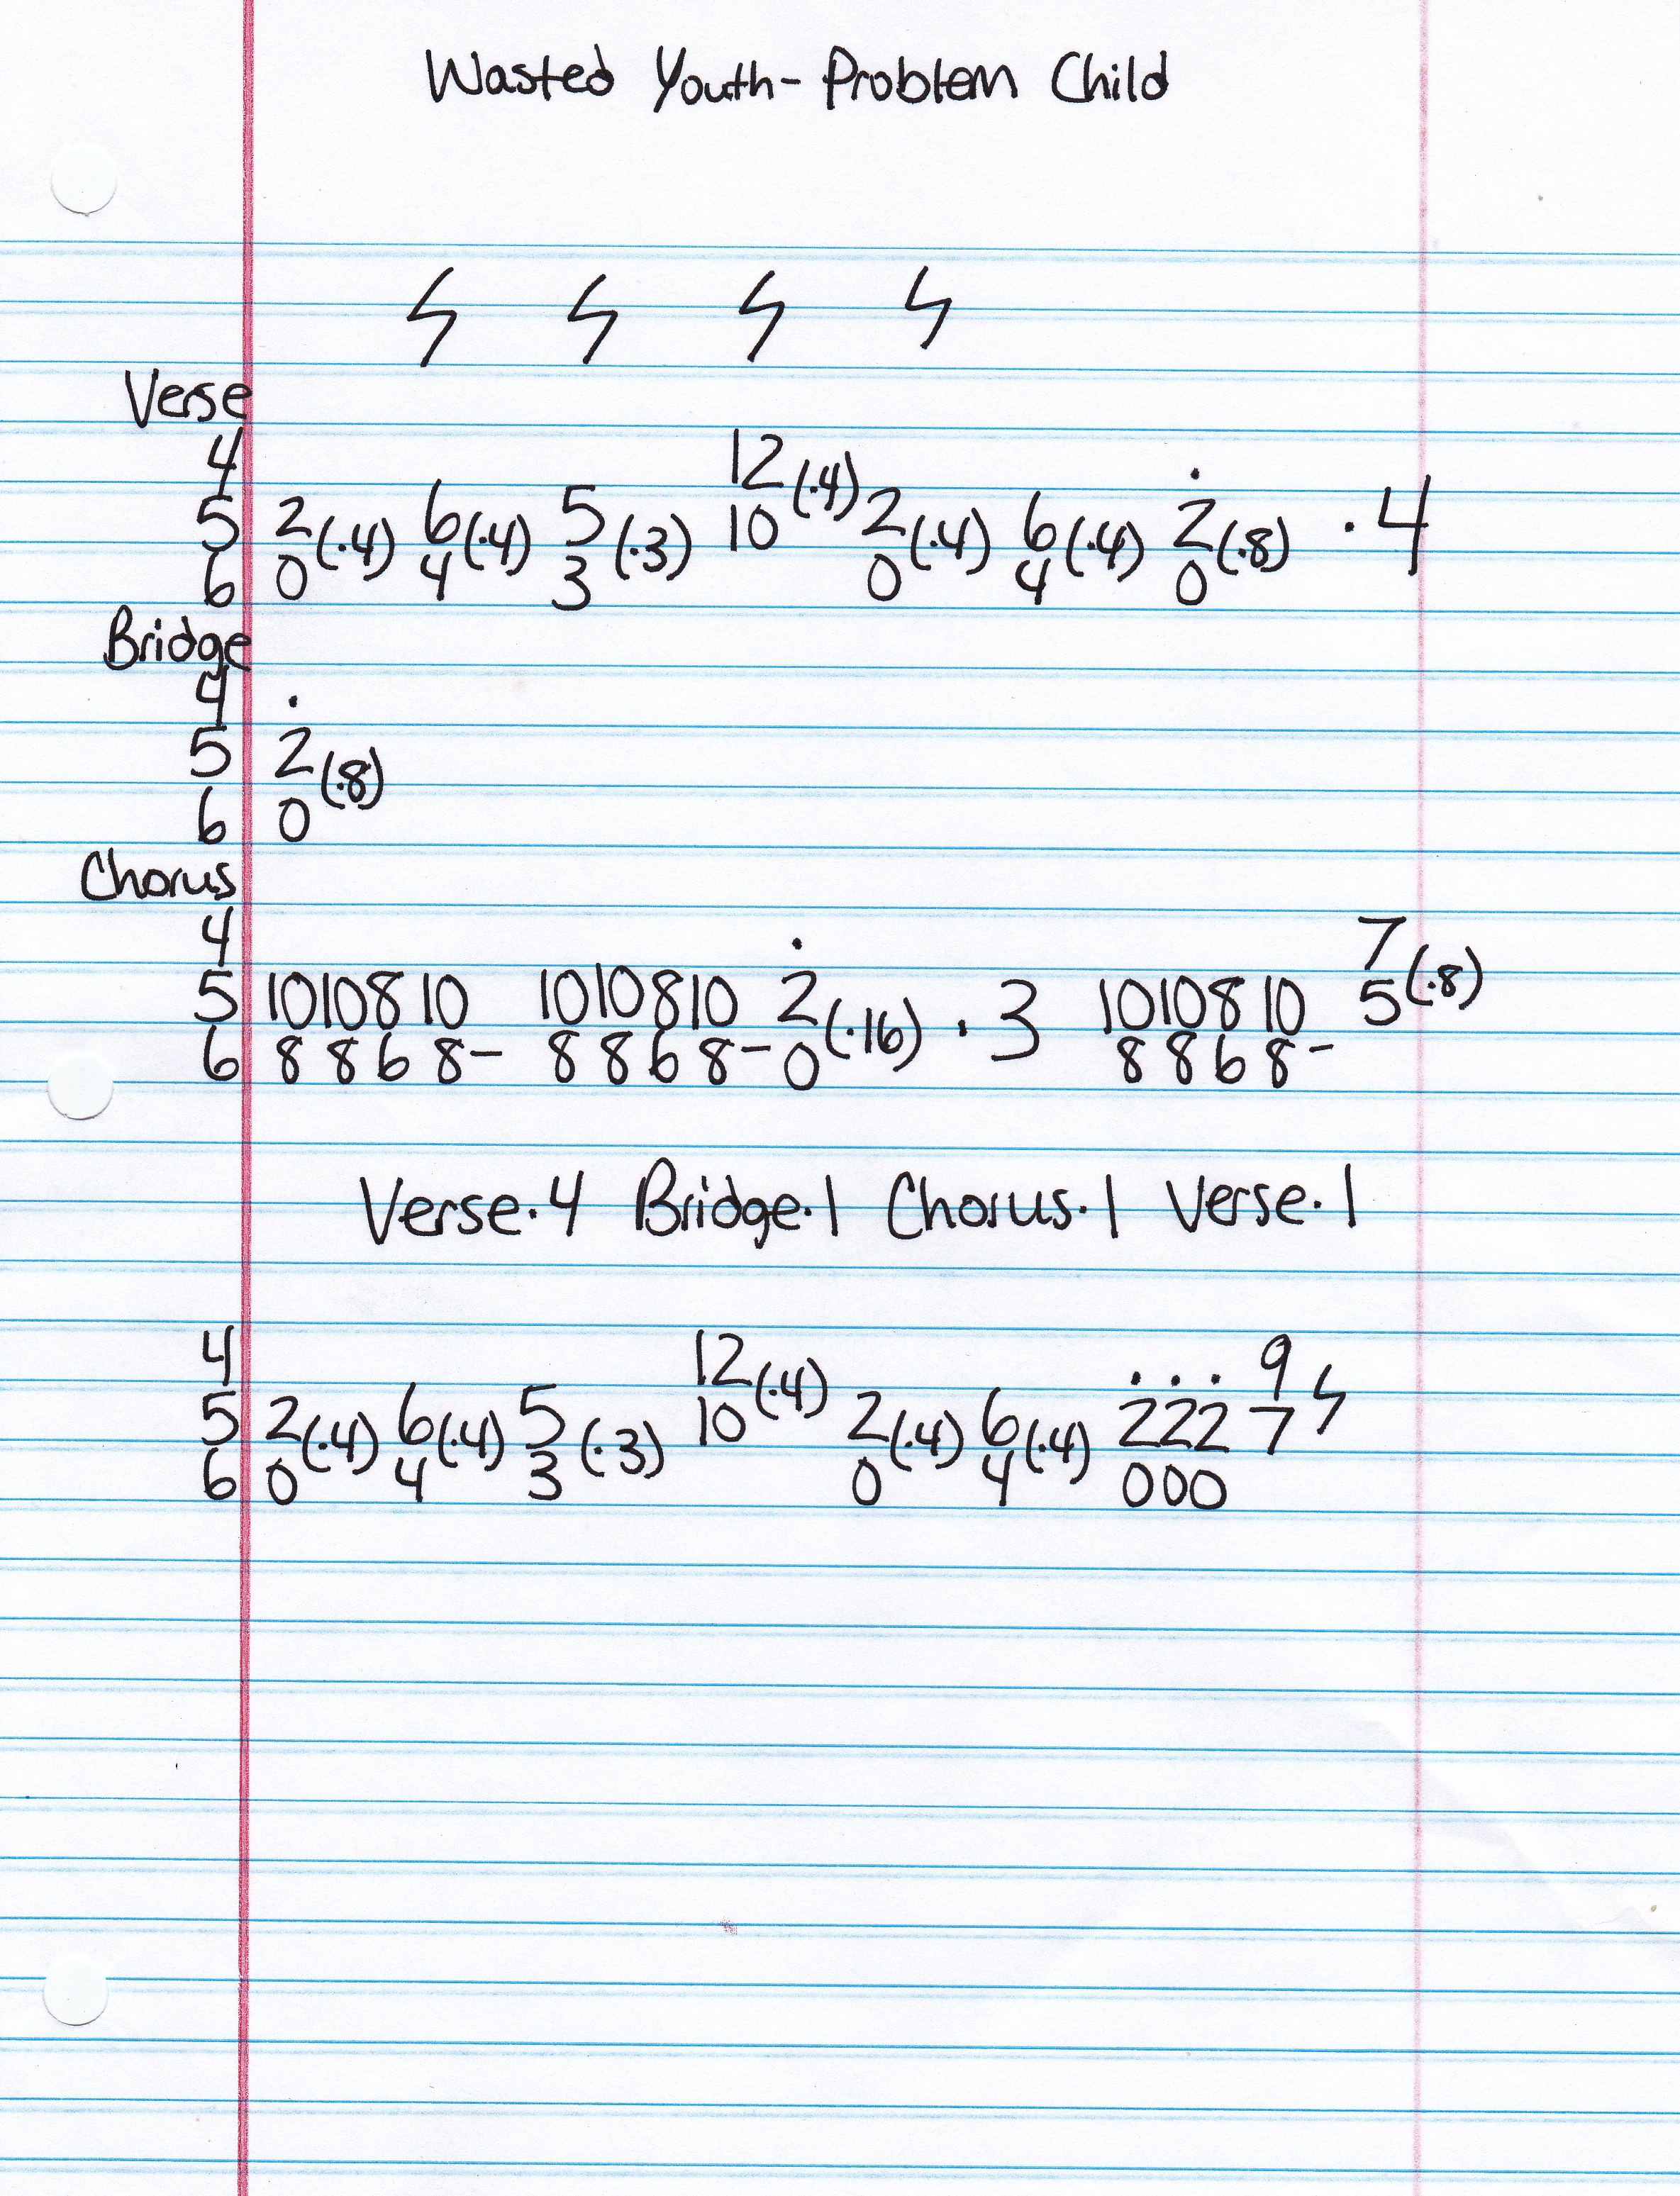 Wasted Youth-Problem Child
Verse
4 12(·4)
5 2(·4) 6(·4) 5(·3) 10 2(·4) 6(·4) 2(·8) ·4
6 0 4 3 0 4 0
Bridge
4 ·
5 2(·8)
6 0
Chorus
4 · 7
5 10 10 8 10 10 10 8 10 2(·16) ·3 10 10 8 10 5(·8)
6 8 8 6 8- 8 8 6 8- 0 8 8 6 8-
Verse·4 Bridge·1 Chorus·1 Verse·1
4 12(·4) · · · 9
5 2(·4) 6(·4) 5(·3) 10 2(·4) 6(·4) 2 2 2 7
6 0 4 3 0 4 0 0 0